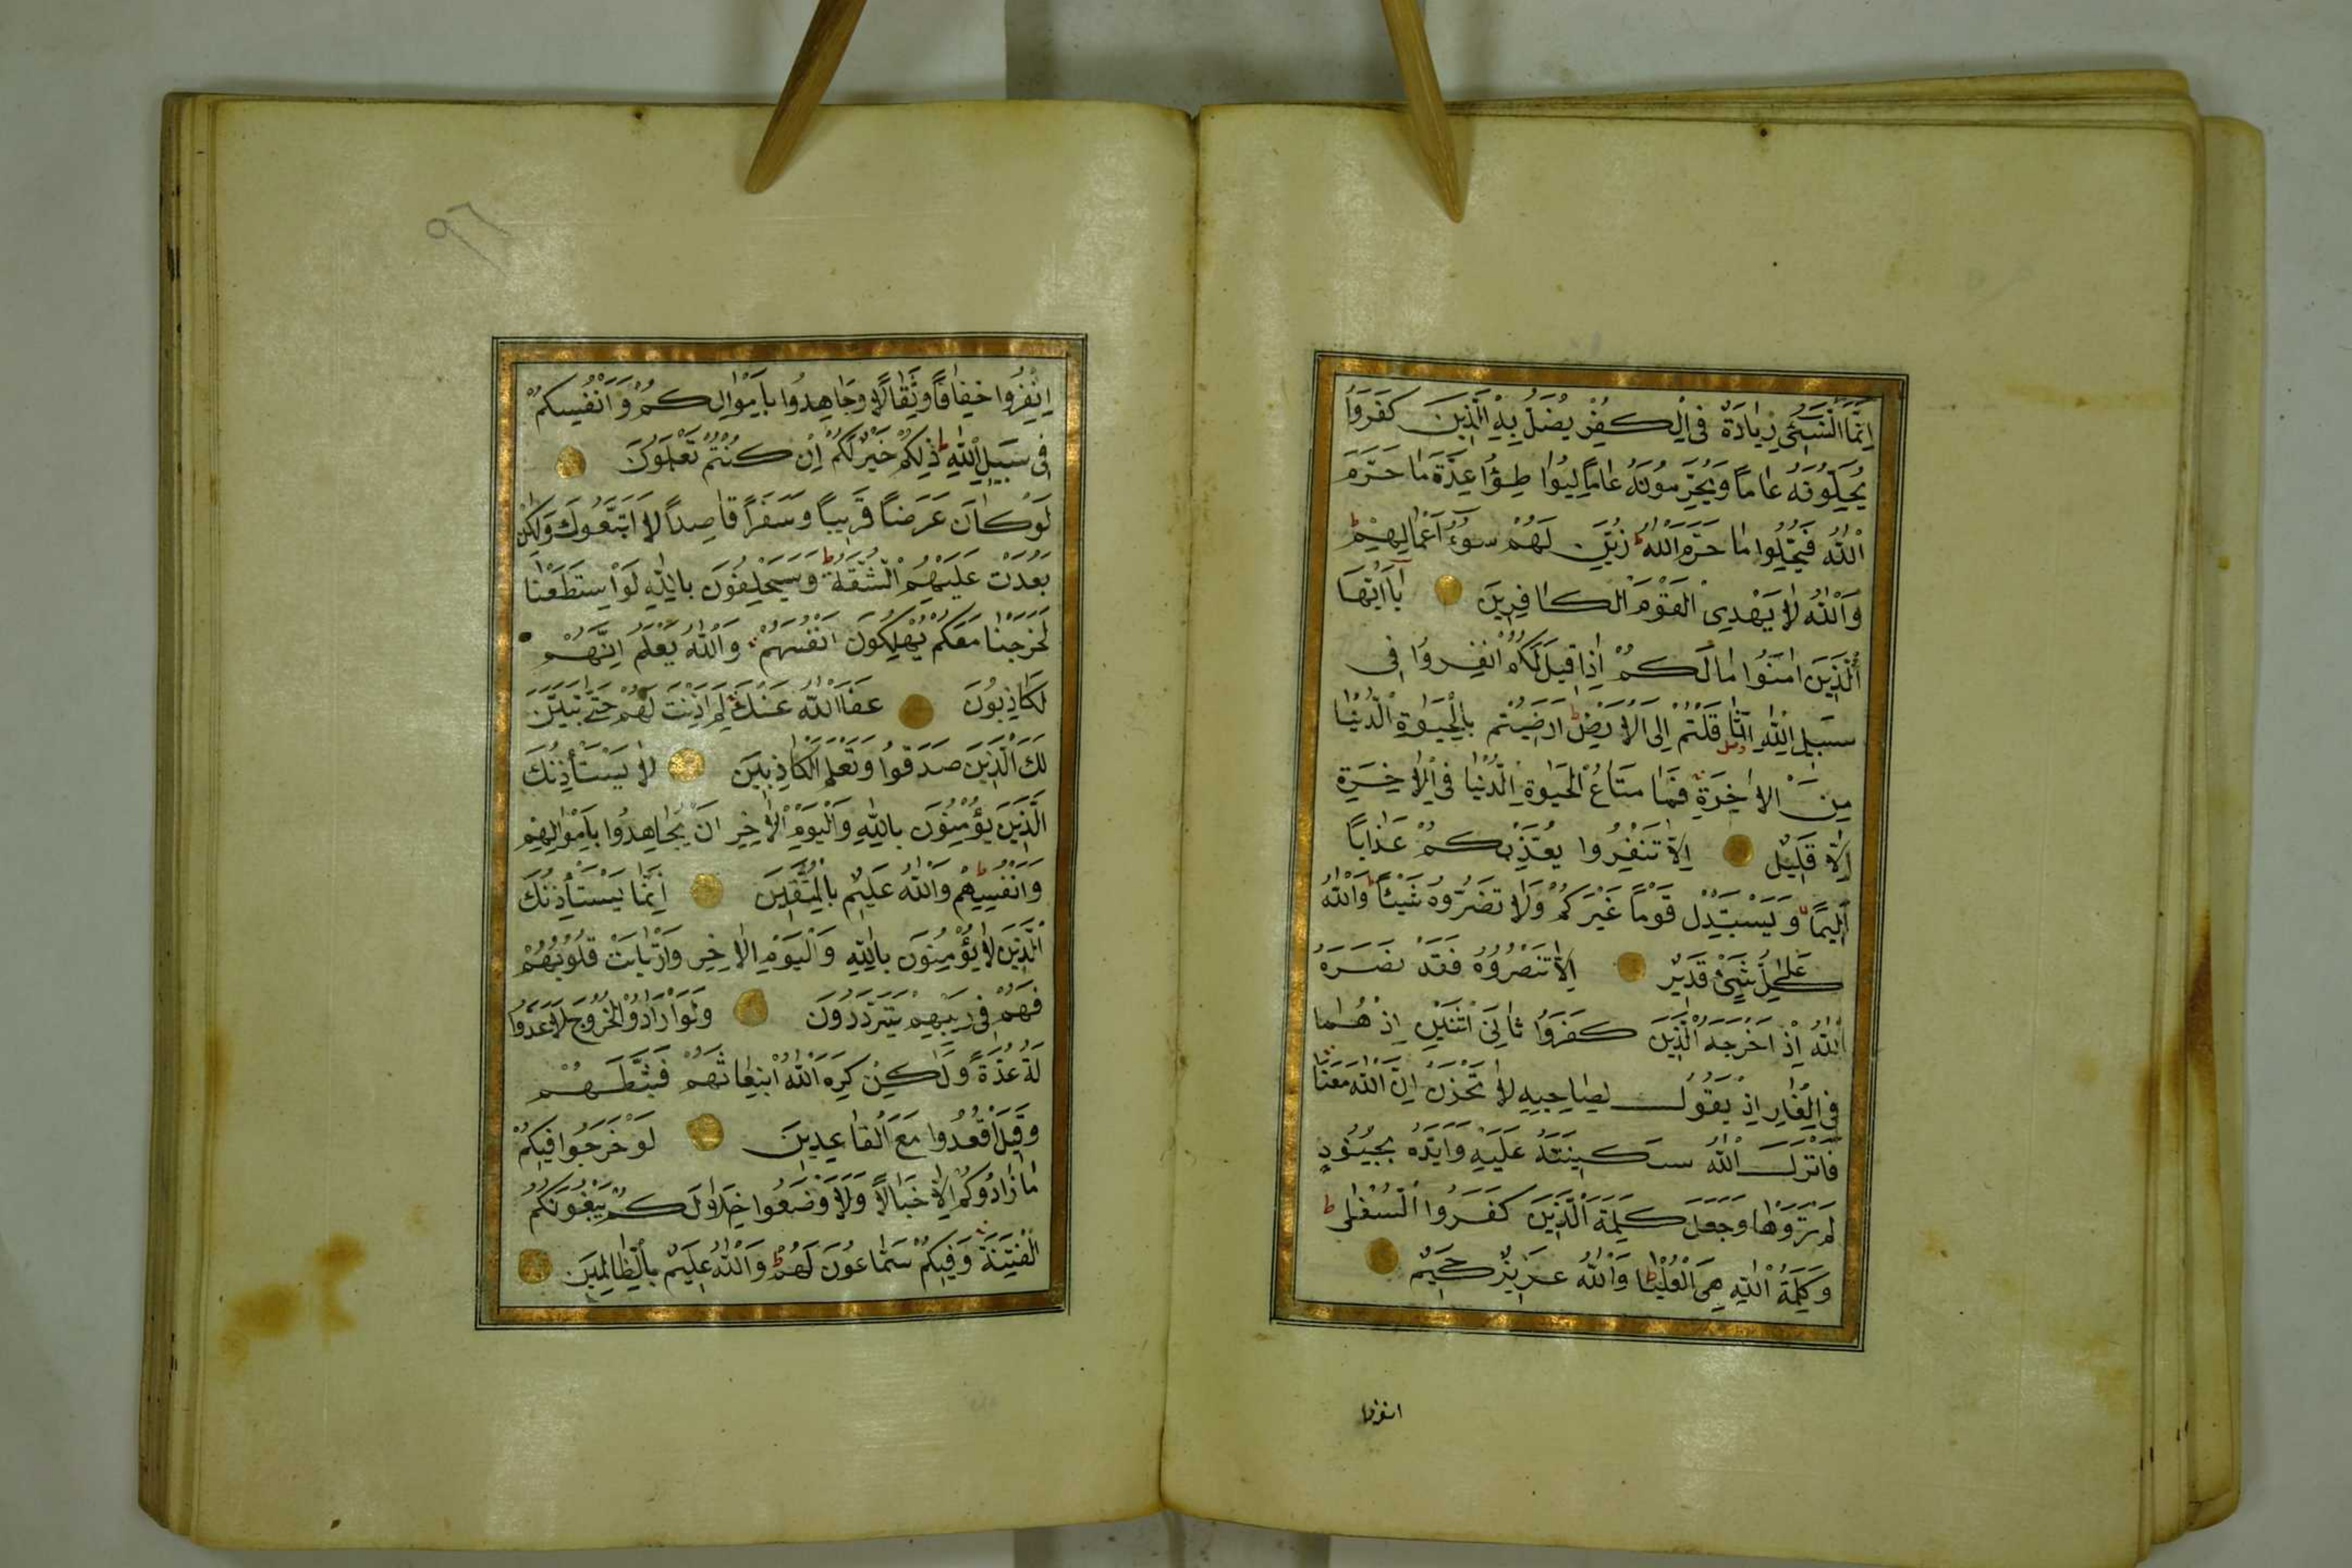 اِنَّمَا النَّسِيءُ زِيَادَةٌ فِي الْكُفْرِ يُضَلُّ بِهِ الَّذِينَ كَفَرُوا
يُحِلُّونَهُ عَامًا وَيُحَرِّمُونَهُ عَامًا لِيُوَاطِؤُا عِدَّةَ مَا حَرَّمَ
اللّٰهُ فَيُحِلُّوا مَا حَرَّمَ اللّٰهُ ط زُيِّنَ لَهُمْ سُوءُ اَعْمَالِهِمْ ط
وَاللّٰهُ لَا يَهْدِى الْقَوْمَ الْكَافِرِينَ يَا اَيُّهَا
الَّذِينَ اٰمَنُوا مَا لَكُمْ اِذَا قِيلَ لَكُمُ انْفِرُوا فِى
سَبِيلِ اللّٰهِ اثَّاقَلْتُمْ اِلَى الْاَرْضِ ط اَرَضِيتُمْ بِالْحَيٰوةِ الدُّنْيَا
مِنَ الْاٰخِرَةِ فَمَا مَتَاعُ الْحَيٰوةِ الدُّنْيَا فِى الْاٰخِرَةِ
اِلَّا قَلِيلٌ اِلَّا تَنْفِرُوا يُعَذِّبْكُمْ عَذَابًا
اَلِيمًا وَيَسْتَبْدِلْ قَوْمًا غَيْرَكُمْ وَلَا تَضُرُّوهُ شَيْئًا ط وَاللّٰهُ
عَلٰى كُلِّ شَيْءٍ قَدِيرٌ اِلَّا تَنْصُرُوهُ فَقَدْ نَصَرَهُ
اللّٰهُ اِذْ اَخْرَجَهُ الَّذِينَ كَفَرُوا ثَانِىَ اثْنَيْنِ اِذْ هُمَا
فِى الْغَارِ اِذْ يَقُولُ لِصَاحِبِهِ لَا تَحْزَنْ اِنَّ اللّٰهَ مَعَنَا
فَاَنْزَلَ اللّٰهُ سَكِينَتَهُ عَلَيْهِ وَاَيَّدَهُ بِجُنُودٍ
لَمْ تَرَوْهَا وَجَعَلَ كَلِمَةَ الَّذِينَ كَفَرُوا السُّفْلٰى ط
وَكَلِمَةُ اللّٰهِ هِىَ الْعُلْيَا ط وَاللّٰهُ عَزِيزٌ حَكِيمٌ
انفروا
٢٩
اِنْفِرُوا خِفَافًا وَثِقَالًا وَجَاهِدُوا بِاَمْوَالِكُمْ وَاَنْفُسِكُمْ
فِى سَبِيلِ اللّٰهِ ط ذٰلِكُمْ خَيْرٌ لَكُمْ اِنْ كُنْتُمْ تَعْلَمُونَ
لَوْ كَانَ عَرَضًا قَرِيبًا وَسَفَرًا قَاصِدًا لَاتَّبَعُوكَ وَلٰكِنْ
بَعُدَتْ عَلَيْهِمُ الشُّقَّةُ ط وَسَيَحْلِفُونَ بِاللّٰهِ لَوِ اسْتَطَعْنَا
لَخَرَجْنَا مَعَكُمْ يُهْلِكُونَ اَنْفُسَهُمْ وَاللّٰهُ يَعْلَمُ اِنَّهُمْ
لَكَاذِبُونَ عَفَا اللّٰهُ عَنْكَ لِمَ اَذِنْتَ لَهُمْ حَتّٰى يَتَبَيَّنَ
لَكَ الَّذِينَ صَدَقُوا وَتَعْلَمَ الْكَاذِبِينَ لَا يَسْتَأْذِنُكَ
الَّذِينَ يُؤْمِنُونَ بِاللّٰهِ وَالْيَوْمِ الْاٰخِرِ اَنْ يُجَاهِدُوا بِاَمْوَالِهِمْ
وَاَنْفُسِهِمْ ط وَاللّٰهُ عَلِيمٌ بِالْمُتَّقِينَ اِنَّمَا يَسْتَأْذِنُكَ
الَّذِينَ لَا يُؤْمِنُونَ بِاللّٰهِ وَالْيَوْمِ الْاٰخِرِ وَارْتَابَتْ قُلُوبُهُمْ
فَهُمْ فِى رَيْبِهِمْ يَتَرَدَّدُونَ وَلَوْ اَرَادُوا الْخُرُوجَ لَاَعَدُّوا
لَهُ عُدَّةً وَلٰكِنْ كَرِهَ اللّٰهُ انْبِعَاثَهُمْ فَثَبَّطَهُمْ
وَقِيلَ اقْعُدُوا مَعَ الْقَاعِدِينَ لَوْ خَرَجُوا فِيكُمْ
مَا زَادُوكُمْ اِلَّا خَبَالًا وَلَاَوْضَعُوا خِلَالَكُمْ يَبْغُونَكُمُ
الْفِتْنَةَ وَفِيكُمْ سَمَّاعُونَ لَهُمْ ط وَاللّٰهُ عَلِيمٌ بِالظَّالِمِينَ